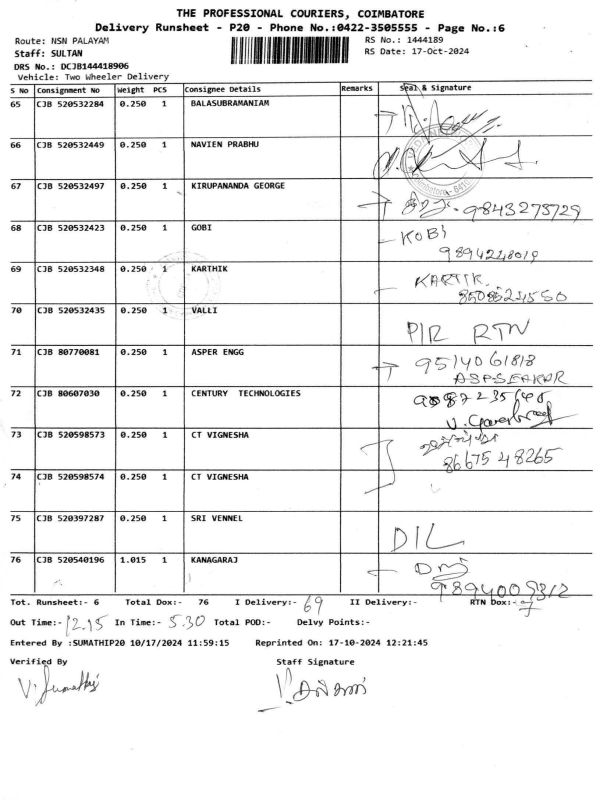 THE PROFESSIONAL COURIERS, COIMBATORE
Delivery Runsheet - P20 - Phone No.:0422-3505555 - Page No.:6
Route: NSN PALAYAM RS No.: 1444189
Staff: SULTAN RS Date: 17-Oct-2024
DRS No.: DCJB144418906
Vehicle: Two Wheeler Delivery
S No Consignment No Weight PCS Consignee Details Remarks Seal & Signature
65 CJB 520532284 0.250 1 BALASUBRAMANIAM
66 CJB 520532449 0.250 1 NAVIEN PRABHU
67 CJB 520532497 0.250 1 KIRUPANANDA GEORGE 9843273729
68 CJB 520532423 0.250 1 GOBI KOBI
9894228019
69 CJB 520532348 0.250 1 KARTHIK KARTIK
70 CJB 520532435 0.250 1 VALLI P/R RTN
71 CJB 80770081 0.250 1 ASPER ENGG 9514061818
72 CJB 80607030 0.250 1 CENTURY TECHNOLOGIES
73 CJB 520598573 0.250 1 CT VIGNESHA
8667548265
74 CJB 520598574 0.250 1 CT VIGNESHA
75 CJB 520397287 0.250 1 SRI VENNEL D/L
76 CJB 520540196 1.015 1 KANAGARAJ
Tot. Runsheet:- 6 Total Dox:- 76 I Delivery:- 69 II Delivery:- RTN Dox:- 7
Out Time:- 12.15 In Time:- 5.30 Total POD:- Delvy Points:-
Entered By :SUMATHIP20 10/17/2024 11:59:15 Reprinted On: 17-10-2024 12:21:45
Verified By Staff Signature
V. Sumathi